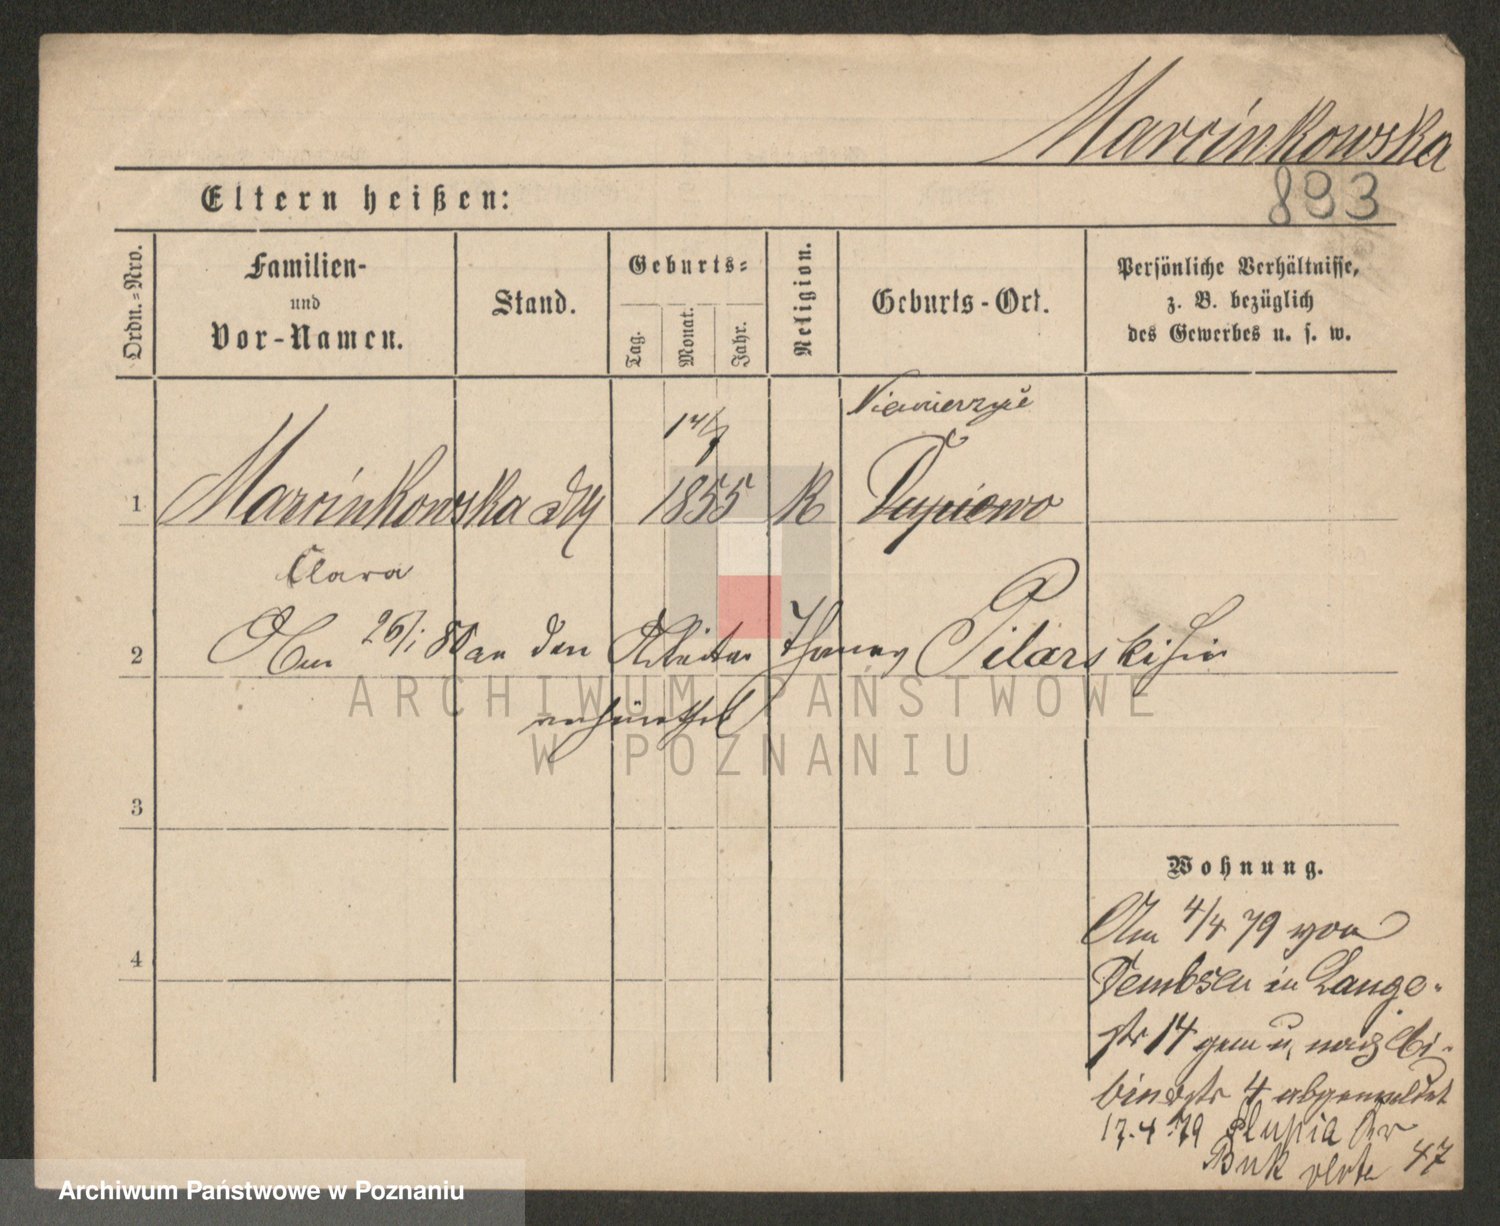 Marcinkowska
893
Eltern heißen:
Ordn.-Nro.
Familien-
und
Vor-Namen.
Stand.
Geburts-
Tag.
Monat.
Jahr.
Religion.
Geburts-Ort.
Persönliche Verhältnisse,
z. B. bezüglich
des Gewerbes u. s. w.
14/7
1 Marcinkowska 1855 K Dupiewo
Clara
2 Am 26/1 80 an den Arbeiter Thomas Pilarski hier
ARCHIWUM PAŃSTWOWE
W POZNANIU
3
4
Wohnung.
Am 4/4 79 von
Dembsen in Lange-
str 14 gem u. nach Bi-
binastr 4 abgemeldet
17.4.79 Slupia Kr
Buk 47
Archiwum Państwowe w Poznaniu